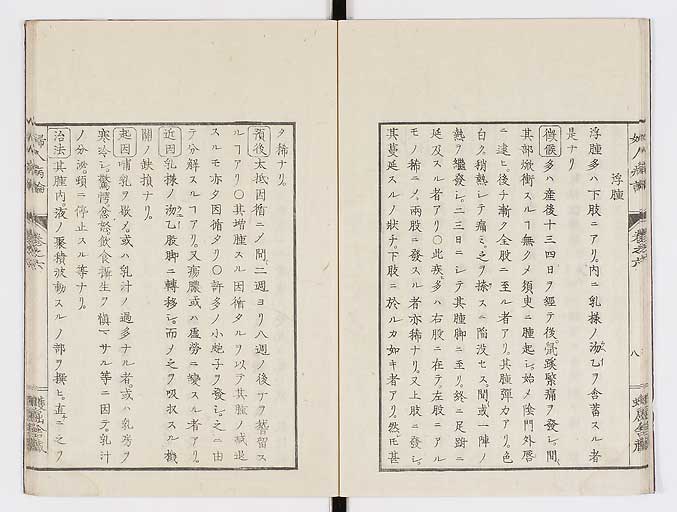 浮腫
浮腫多ハ下肢ニアリ。内ニ乳様ノ泑乙ヲ含蓄スル者
是ナリ
徴候多ハ産後十三四日ヲ經テ後。鼠蹊緊痛ヲ發シ。間
其部焮衝スルヿ無クメ須臾ニ腫起シ。始メ陰門外唇
ニ連ヒ。後チ漸ク全股ニ至ル者アリ。其腫彈力アリ。色
白ク稍熱シテ痛ミ。之ヲ捺スニ陥没セス。間或一陣ノ
熱ヲ繼發シ。二三日ニシテ其腫脚ニ至リ。終ニ足跗ニ
延及スル者アリ〇此疾。多ハ右股ニ在テ。左股ニアル
モノ稀ニメ。兩股ニ發スル者亦稀ナリ。又上肢ニ發シ。
其蔓延スルノ狀チ。下肢ニ於ルカ如キ者アリ。然モ甚
タ稀ナリ。
預後大抵因循ニメ。間二週ヨリ八週ノ後ナヲ稽留ス
ルヿアリ〇其増腫スル因循タルヲ以テ其腫ノ減退
スルモ亦タ因循タリ〇許多ノ小炮子ヲ發シ。之ニ由
テ分解スルヿアリ。又瘍膿或ハ虚勞ニ變スル者アリ。
近因乳様ノ泑乙股脚ニ轉移シ。而メ之ヲ吸收スル機
關ノ缺損ナリ。
起因哺乳ヲ歇メ。或ハ乳汁ノ過多ナル者。或ハ乳房ヲ
寒冷シ。驚愕忿怒飲食攝生ヲ愼マサル等ニ因テ。乳汁
ノ分泌。頓ニ停止スル等ナリ。
治法其腫内。液ノ聚積波動スルノ部ヲ撰ヒ。直ニ之ヲ
婦人病論
巻之六
八